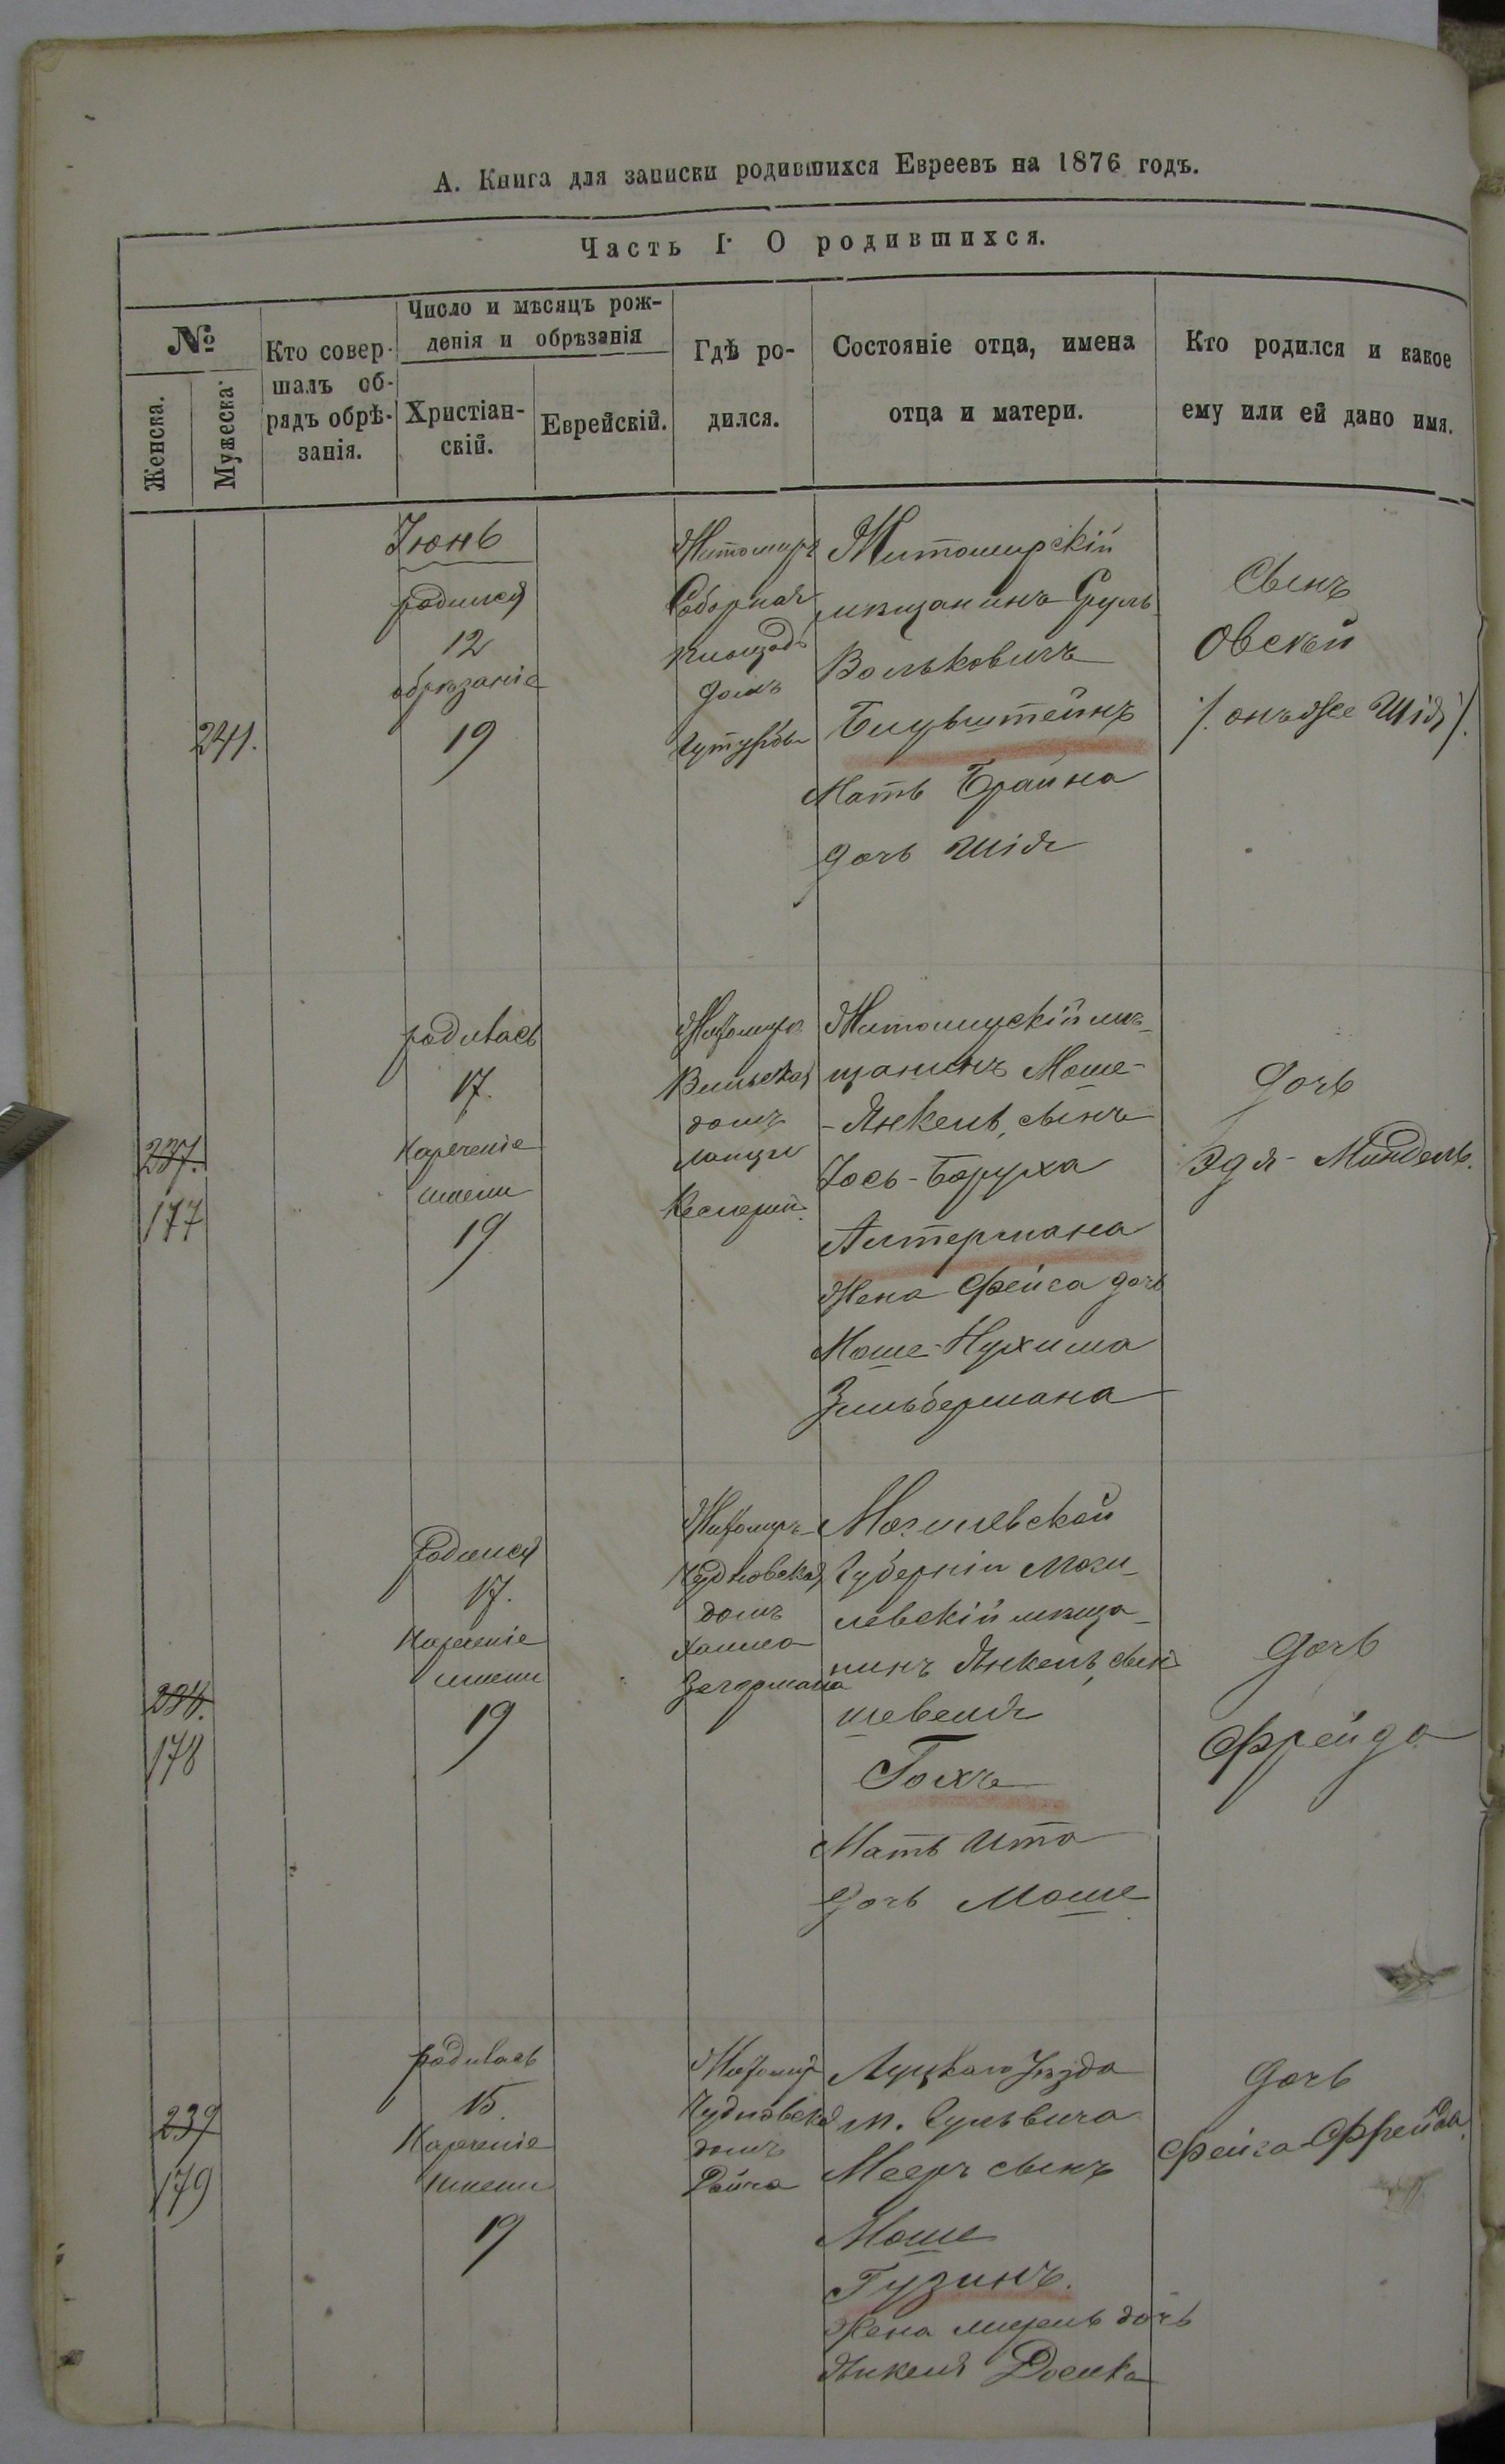 А. Книга для записки родившихся Евреевъ на 1876 годъ.
Часть I. О родившихся.
№
Женска.
Мужеска.
Кто совер-
шалъ об-
рядъ обрѣ-
занія.
Число и мѣсяцъ рож-
денія и обрѣзанія
Христіан-
скій.
Еврейскій.
Гдѣ ро-
дился.
Состояніе отца, имена
отца и матери.
Кто родился и какое
ему или ей дано имя.
241.
Іюнь
родился
12
обрѣзаніе
19
Житомиръ
Соборная
площадь
домъ
Житомирскій
мѣщанинъ Сруль
Вольковичъ
Мать Брайна
дочь Шія
Сынъ
Овсѣй
/. онъ же Шія /.
237.
177
родилась
17.
Нареченіе
имени
19
Житомиръ
Вильская
домъ
Житомирскій мѣ-
щанинъ Моше-
-Янкель, сынъ
Іось-Боруха
Альтермана
Жена Фейга дочь
Моше-Нухима
Зильбермана
дочь
Эдя-Миндель.
238.
178
Родился
17.
Нареченіе
имени
19
Житомиръ
Чудновская
домъ
Могилевской
Губерніи Моги-
левскій мѣща-
нинъ Янкель, сынъ
Шевеля
Гохъ
Мать Ита
дочь Моше
дочь
Фрейда
239
179
родилась
15.
Нареченіе
имени
19
Житомир
Чудновская
домъ
Луцкаго Уѣзда
м.
Мееръ сынъ
Моше
Гузинъ.
Жена дочь
Янкеля
дочь
Фейга-Фрейда.